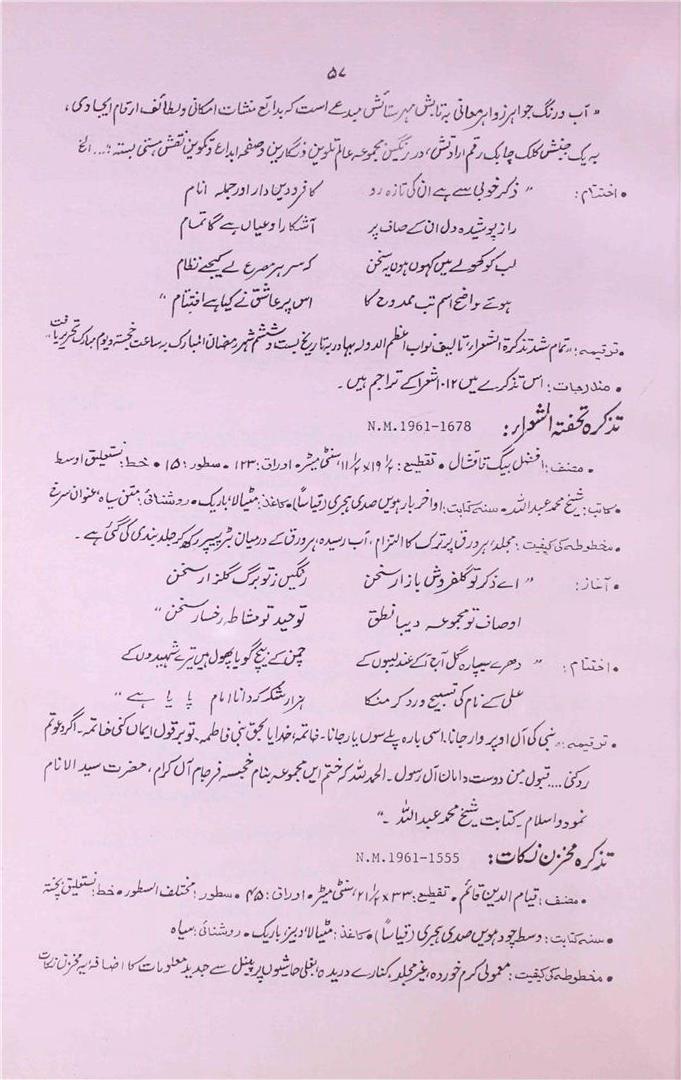 ۵۷
" آب و رنگ جواہر زواہر معانی بہ تابش مہر ستائش مبدعے است کہ بدائع منشات امکانی و لطائف ارقام ایجادی،
بہ یک جنبش کلک چابک رقم ارادتش، در رنگیں مجموعہ عالم تلوین و نگارین و صفحہ ابداع و تکوین نقش ہستی بستہ؛... الخ
• اختتام: " ذکر خوبی سے ہے ان کی تازہ رو کافر و دیندار اور جملہ انام
راز پوشیدہ دل ان کے صاف پر آشکارا و عیاں ہے گا تمام
لب کو کھولے میں کہوں ہوں یہ سخن کہ سر ہر مصرع لے کیجے نظام
ہوئے واضح اسم تب ممدوح کا اس پر عاشق نے کیا ہے اختتام "
• ترقیمہ: " تمام شد تذکرۃ الشعراء تالیف نواب اعظم الدولہ بہادر بہ تاریخ بست و ششم شہر رمضان المبارک بہ ساعت خجستہ و یوم مبارک تحریر یافت "
• مندرجات: اس تذکرے میں ۱۰۱۲ شعرا کے تراجم ہیں۔
تذکرہ تحفتہ الشعراء: N.M.1961-1678
• مصنف: افضل بیگ قاقشال • تقطیع: ۱۹/۲ x ۱۱/۲ سنٹی میٹر • اوراق: ۱۲۳ • سطور: ۱۵ • خط: نستعلیق اوسط
• کاتب: شیخ محمد عبداللہ • سنہ کتابت: اواخر بارہویں صدی ہجری (قیاساً) • کاغذ: مٹیالا، باریک • روشنائی: متن سیاہ، عنوان سرخ
• مخطوطہ کی کیفیت: مجلد، ہر ورق پر ترک کا التزام، آب رسیدہ، ہر ورق کے درمیان بٹر پیپر رکھ کر جلد بندی کی گئی ہے۔
• آغاز: " اے ذکر تو گلفروش بازار سخن رنگیں ز تو برگ گلزار سخن
اوصاف تو مجموعہ دیبا نطق توحید تو مشاطہ رخسار سخن "
• اختتام: " دھرے سیپارہ گل آج آگے عندلیبوں کے چمن کے بیچ گویا پھول ہیں تیرے شہیدوں کے
علی کے نام کی تسبیح ورد کر منکا ہزار شکر کہ دانا امام پایا ہے "
• ترقیمہ: " نبی کی آل اوپر وار جانا۔ اسی بارہ پلے سوں یار جانا۔ خاتمہ: خدایا بحق بنی فاطمہ۔ تو بر قول ایماں کنی خاتمہ۔ اگر دعوتم
رد کنی .... قبول من و دست و دامان آل رسول۔ الحمدللہ کہ ختم ایں مجموعہ بنام خجستہ فرجام آل کرام، حضرت سید الانام
نمود والسلام۔ کتابت شیخ محمد عبداللہ۔ "
تذکرہ مخزن نکات: N.M.1961-1555
• مصنف: قیام الدین قائم • تقطیع: ۳۳ x ۲۱/۲ سنٹی میٹر • اوراق: ۴۵ • سطور: مختلف السطور • خط: نستعلیق پختہ
• سنہ کتابت: وسط چودہویں صدی ہجری (قیاساً) • کاغذ: مٹیالا، دبیز، باریک • روشنائی: سیاہ
• مخطوطہ کی کیفیت: معمولی کرم خوردہ، غیر مجلد، کنارے دریدہ، بغلی حاشیوں پر پینسل سے جدید معلومات کا اضافہ، یہ مخزن نکات